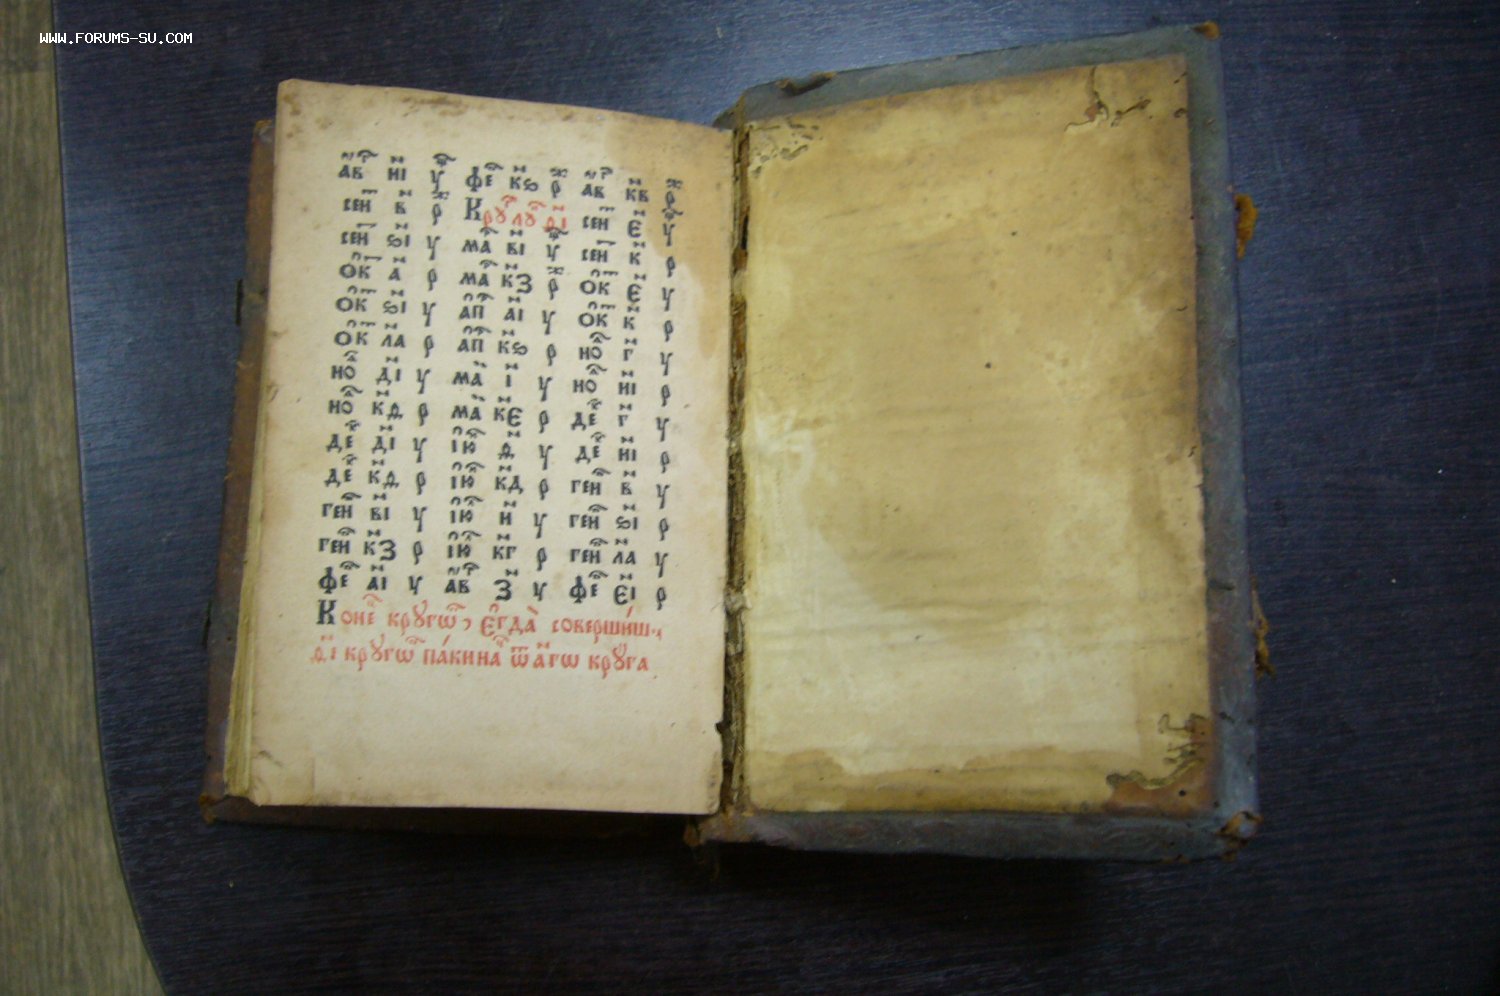 WWW.FORUMS-SU.COM
а҆в҃г н҃і у҃ фе҃ к҃ѕ р҃ а҆в҃г к҃в р҃
сен҃ в҃ р҃ Кру҃ лу҃ ѳ҃і сен҃ є҃ у҃
сен҃ ѕ҃і у ма҃ в҃і у҃ сен҃ к҃ р
о҆к҃ а҃ р ма҃ к҃з р҃ о҆к҃ є҃ у
о҆к҃ ѕ҃і у а҆п҃ а҃і у о҆к҃ к҃ р
о҆к҃ л҃а р а҆п҃ к҃ѕ р но҃ г҃ у
но҃ д҃і у ма҃ і҃ у но҃ и҃і р
но҃ к҃ѳ р ма҃ к҃є р де҃ г҃ у
де҃ д҃і у і҆ю҃ ѳ҃ у де҃ и҃і р
де҃ к҃ѳ р і҆ю҃ к҃д р ген҃ в҃ у
ген҃ в҃і у і҆ю҃ и҃ у ген҃ ѕ҃і р
ген҃ к҃з р і҆ю҃ к҃г р ген҃ л҃а у
фе҃ а҃і у а҆в҃г з҃ у фе҃ є҃і р
Коне҃ крꙋгѡ҃, є҆гда̀ соверши́ш
ѳ҃і крꙋгѡ҃ па́ки на҃ ѿ а҃гѡ крꙋ́га